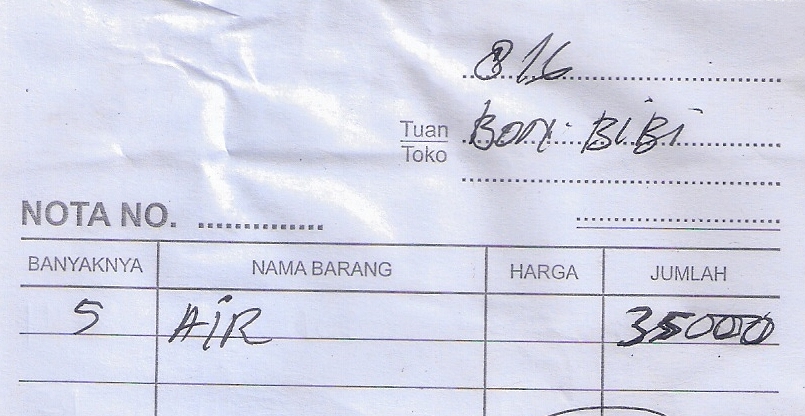 816
Tuan Toko BON BIBI
NOTA NO.
BANYAKNYA NAMA BARANG HARGA JUMLAH
5 AIR 35000